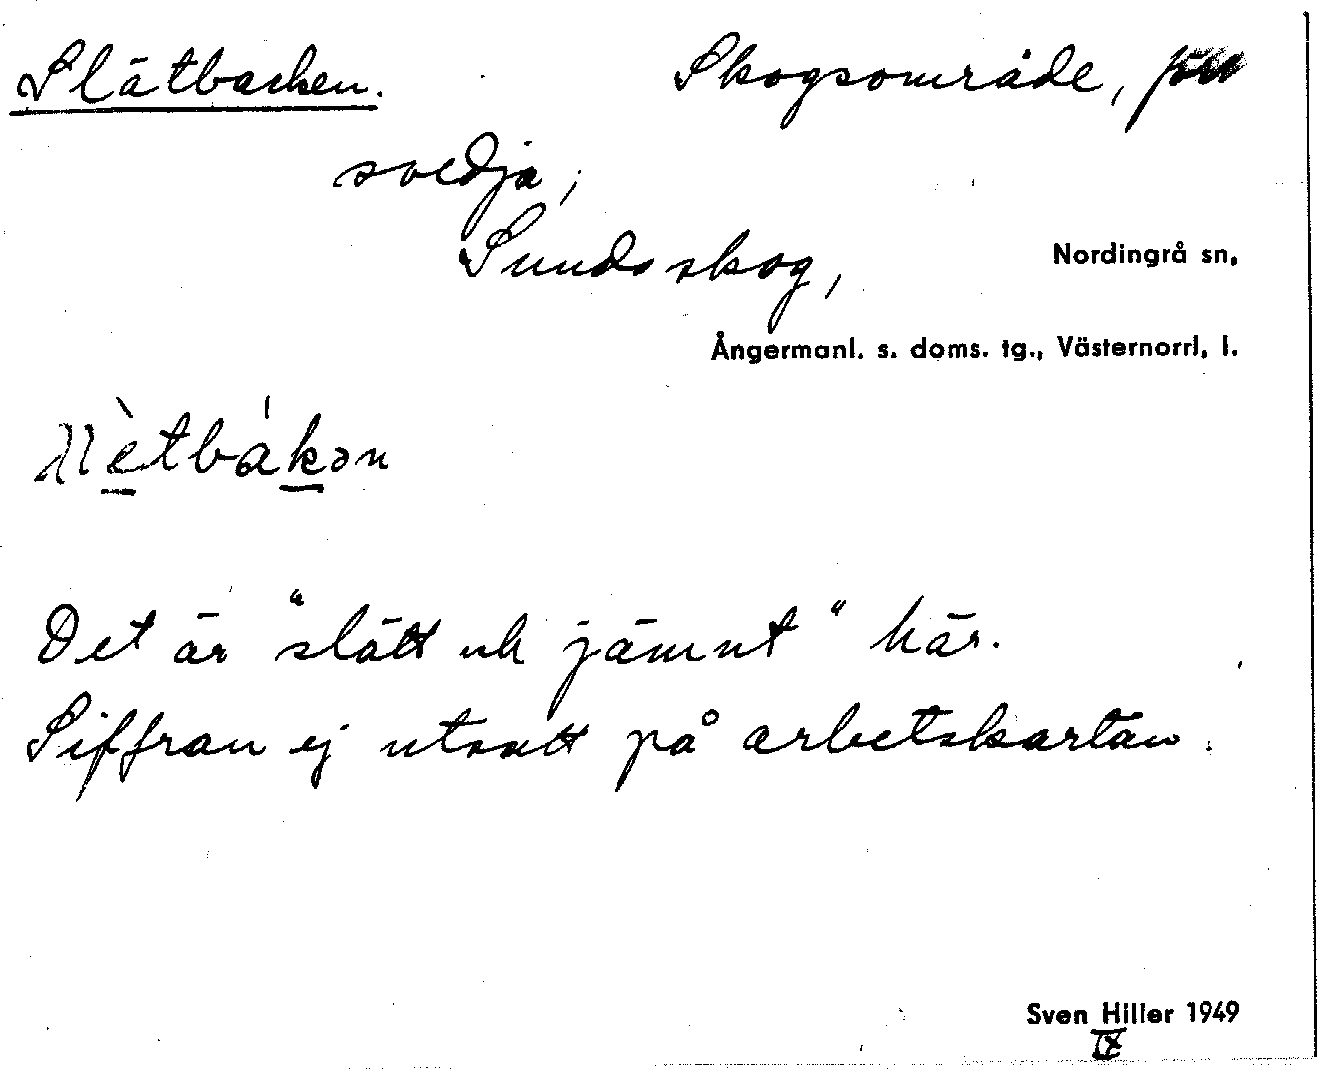 Slätbacken. Skogsområde, förr
svedja,
Sundsskog, Nordingrå sn,
Ångermanl. s. doms. tg., Västernorrl. l.
Det är "slätt uh jämnt" här.
Siffran ej utsatt på arbetskartan.
Sven Hiller 1949
IX